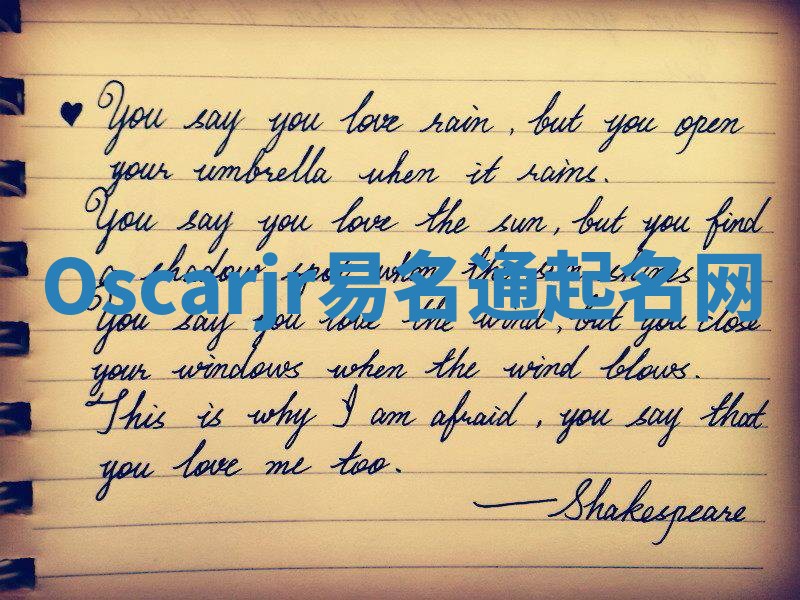 ♥ You say you love rain, but you open
your umbrella when it rains.
You say you love the sun, but you find
a shadow spot when the sun shines
Oscarjr易名通起名网
You say you love the wind, but you close
your windows when the wind blows.
This is why I am afraid, you say that
you love me too.
—Shakespeare